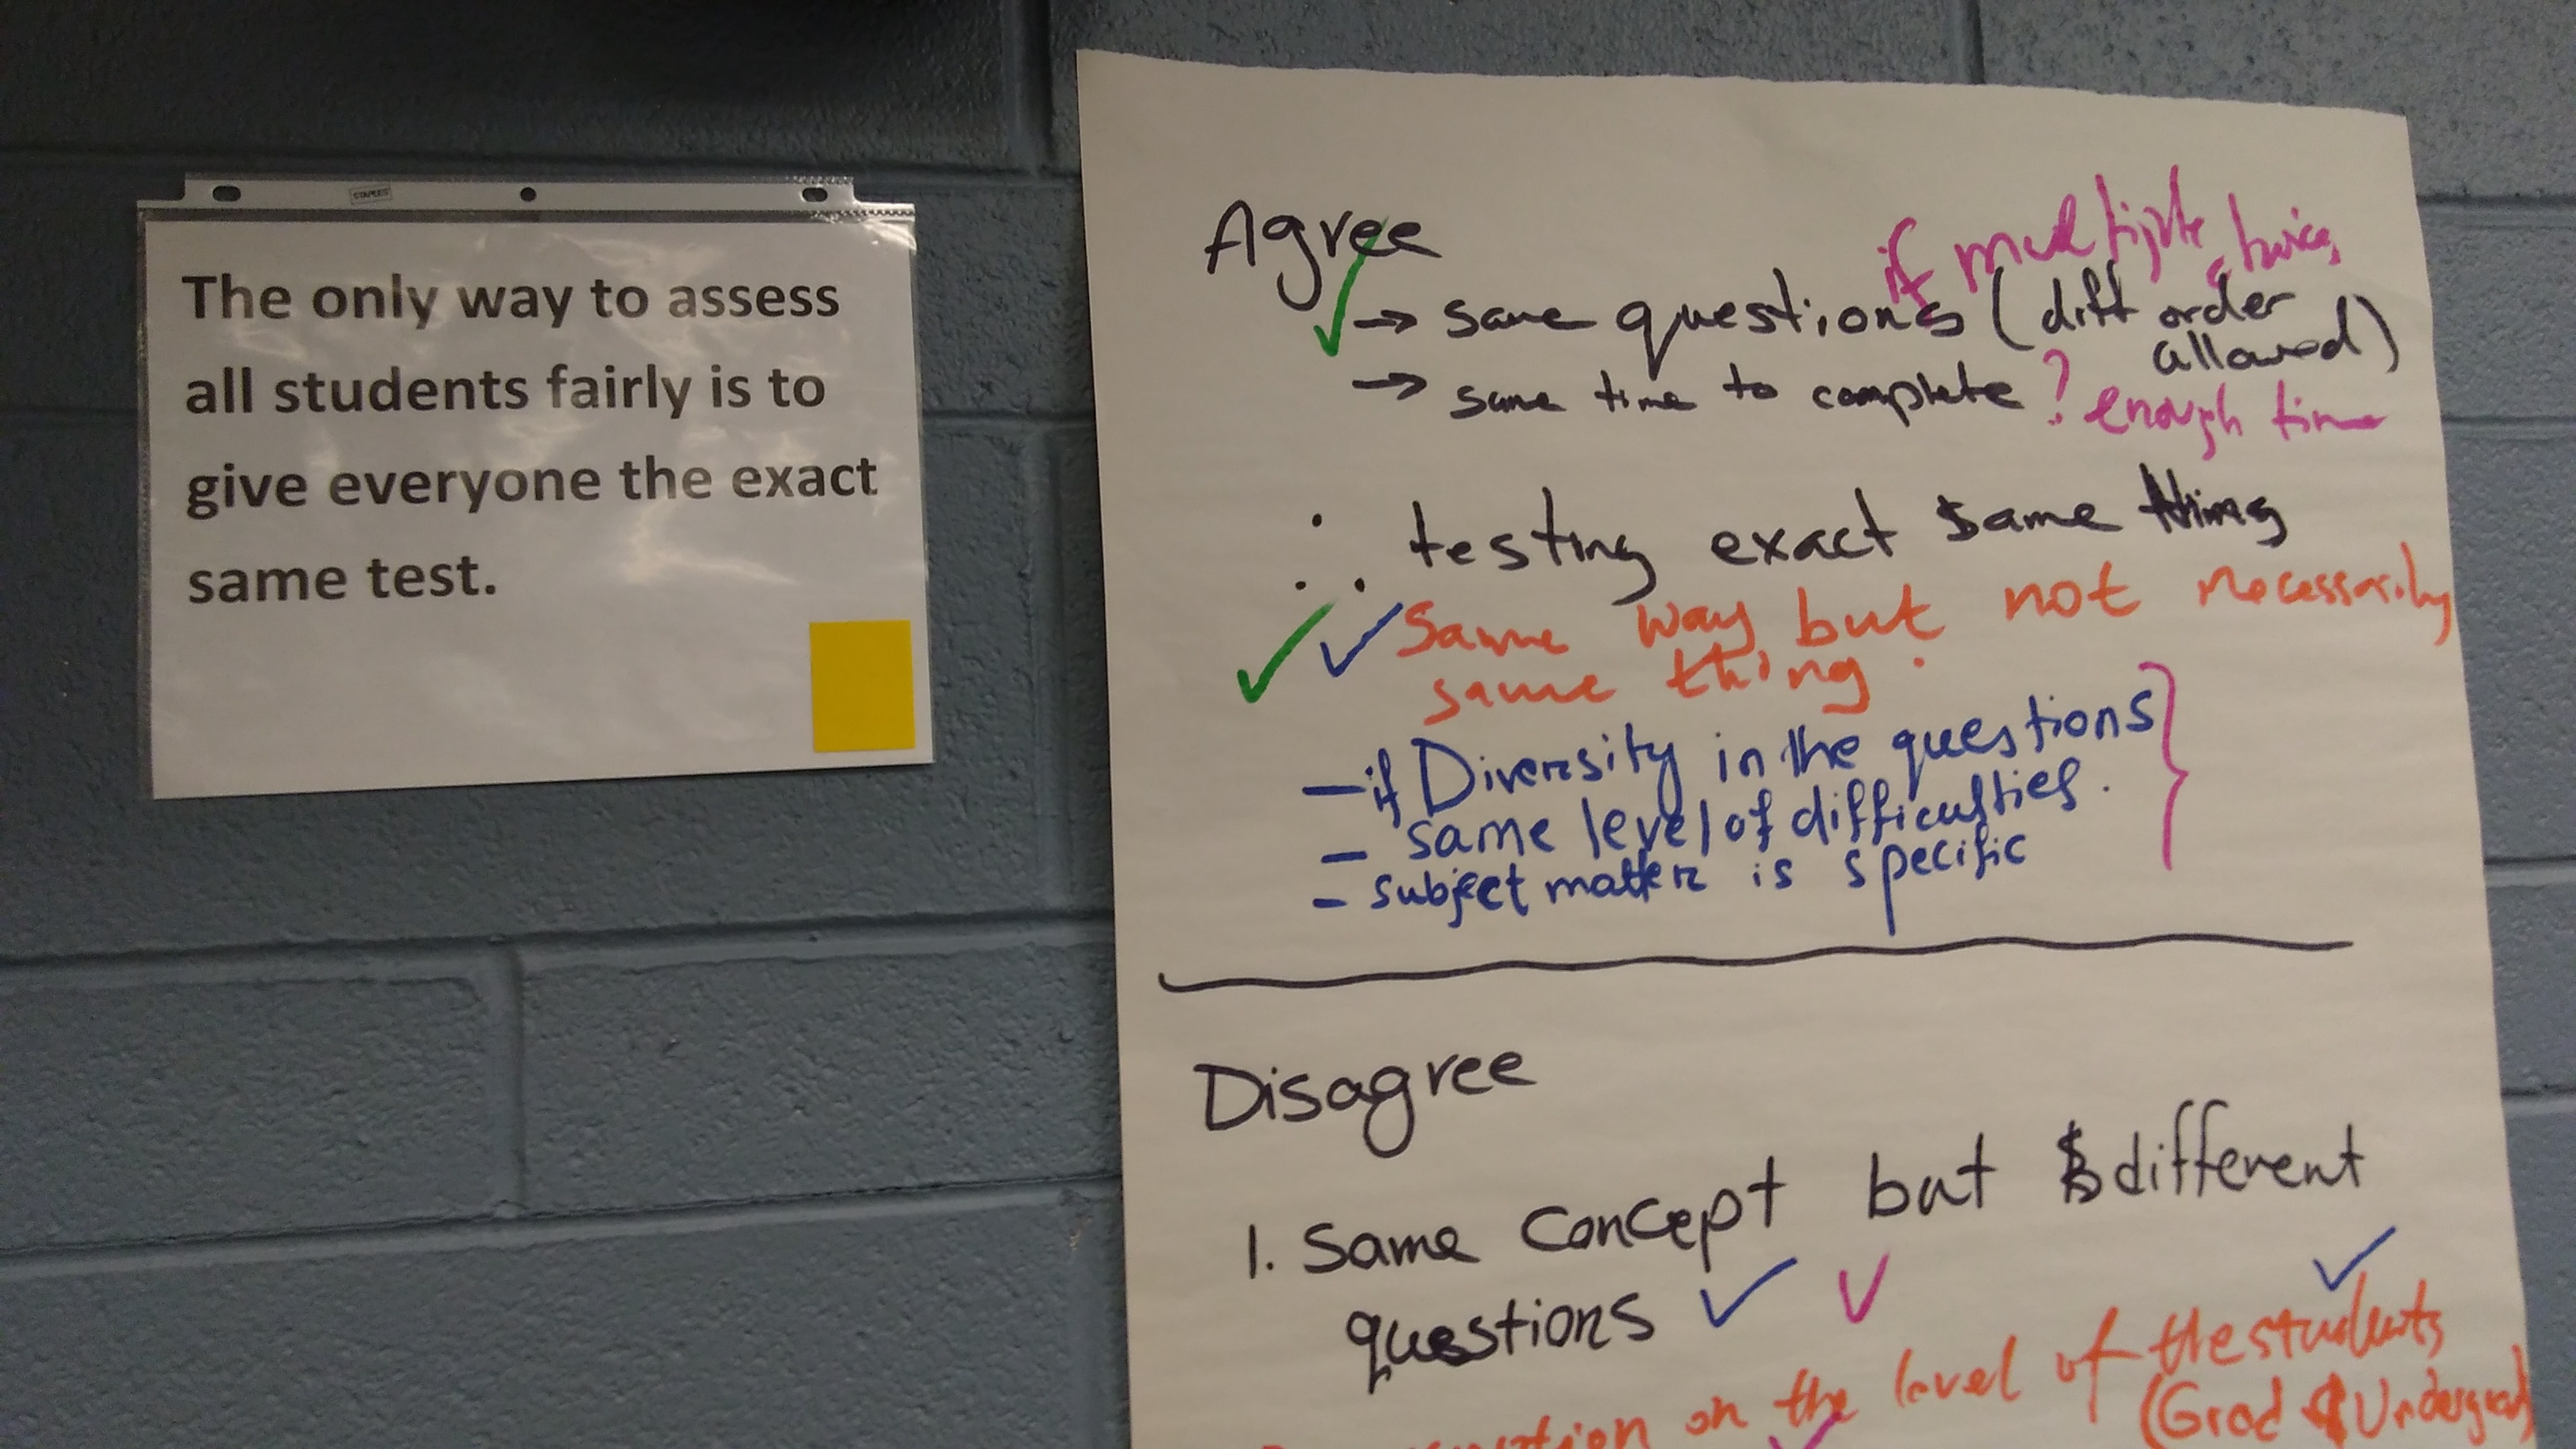 STAPLES
The only way to assess
all students fairly is to
give everyone the exact
same test.
Agree
if multiple
→ same questions (diff order
allowed)
→ same time to complete ? enough time
∴ testing exact same thing
Same way but not necessarily
same thing.
- if Diversity in the questions
- same level of difficulties.
- subject matter is specific
Disagree
1. Same concept but different
questions
on the level of the students
(Grad & Undergrad)